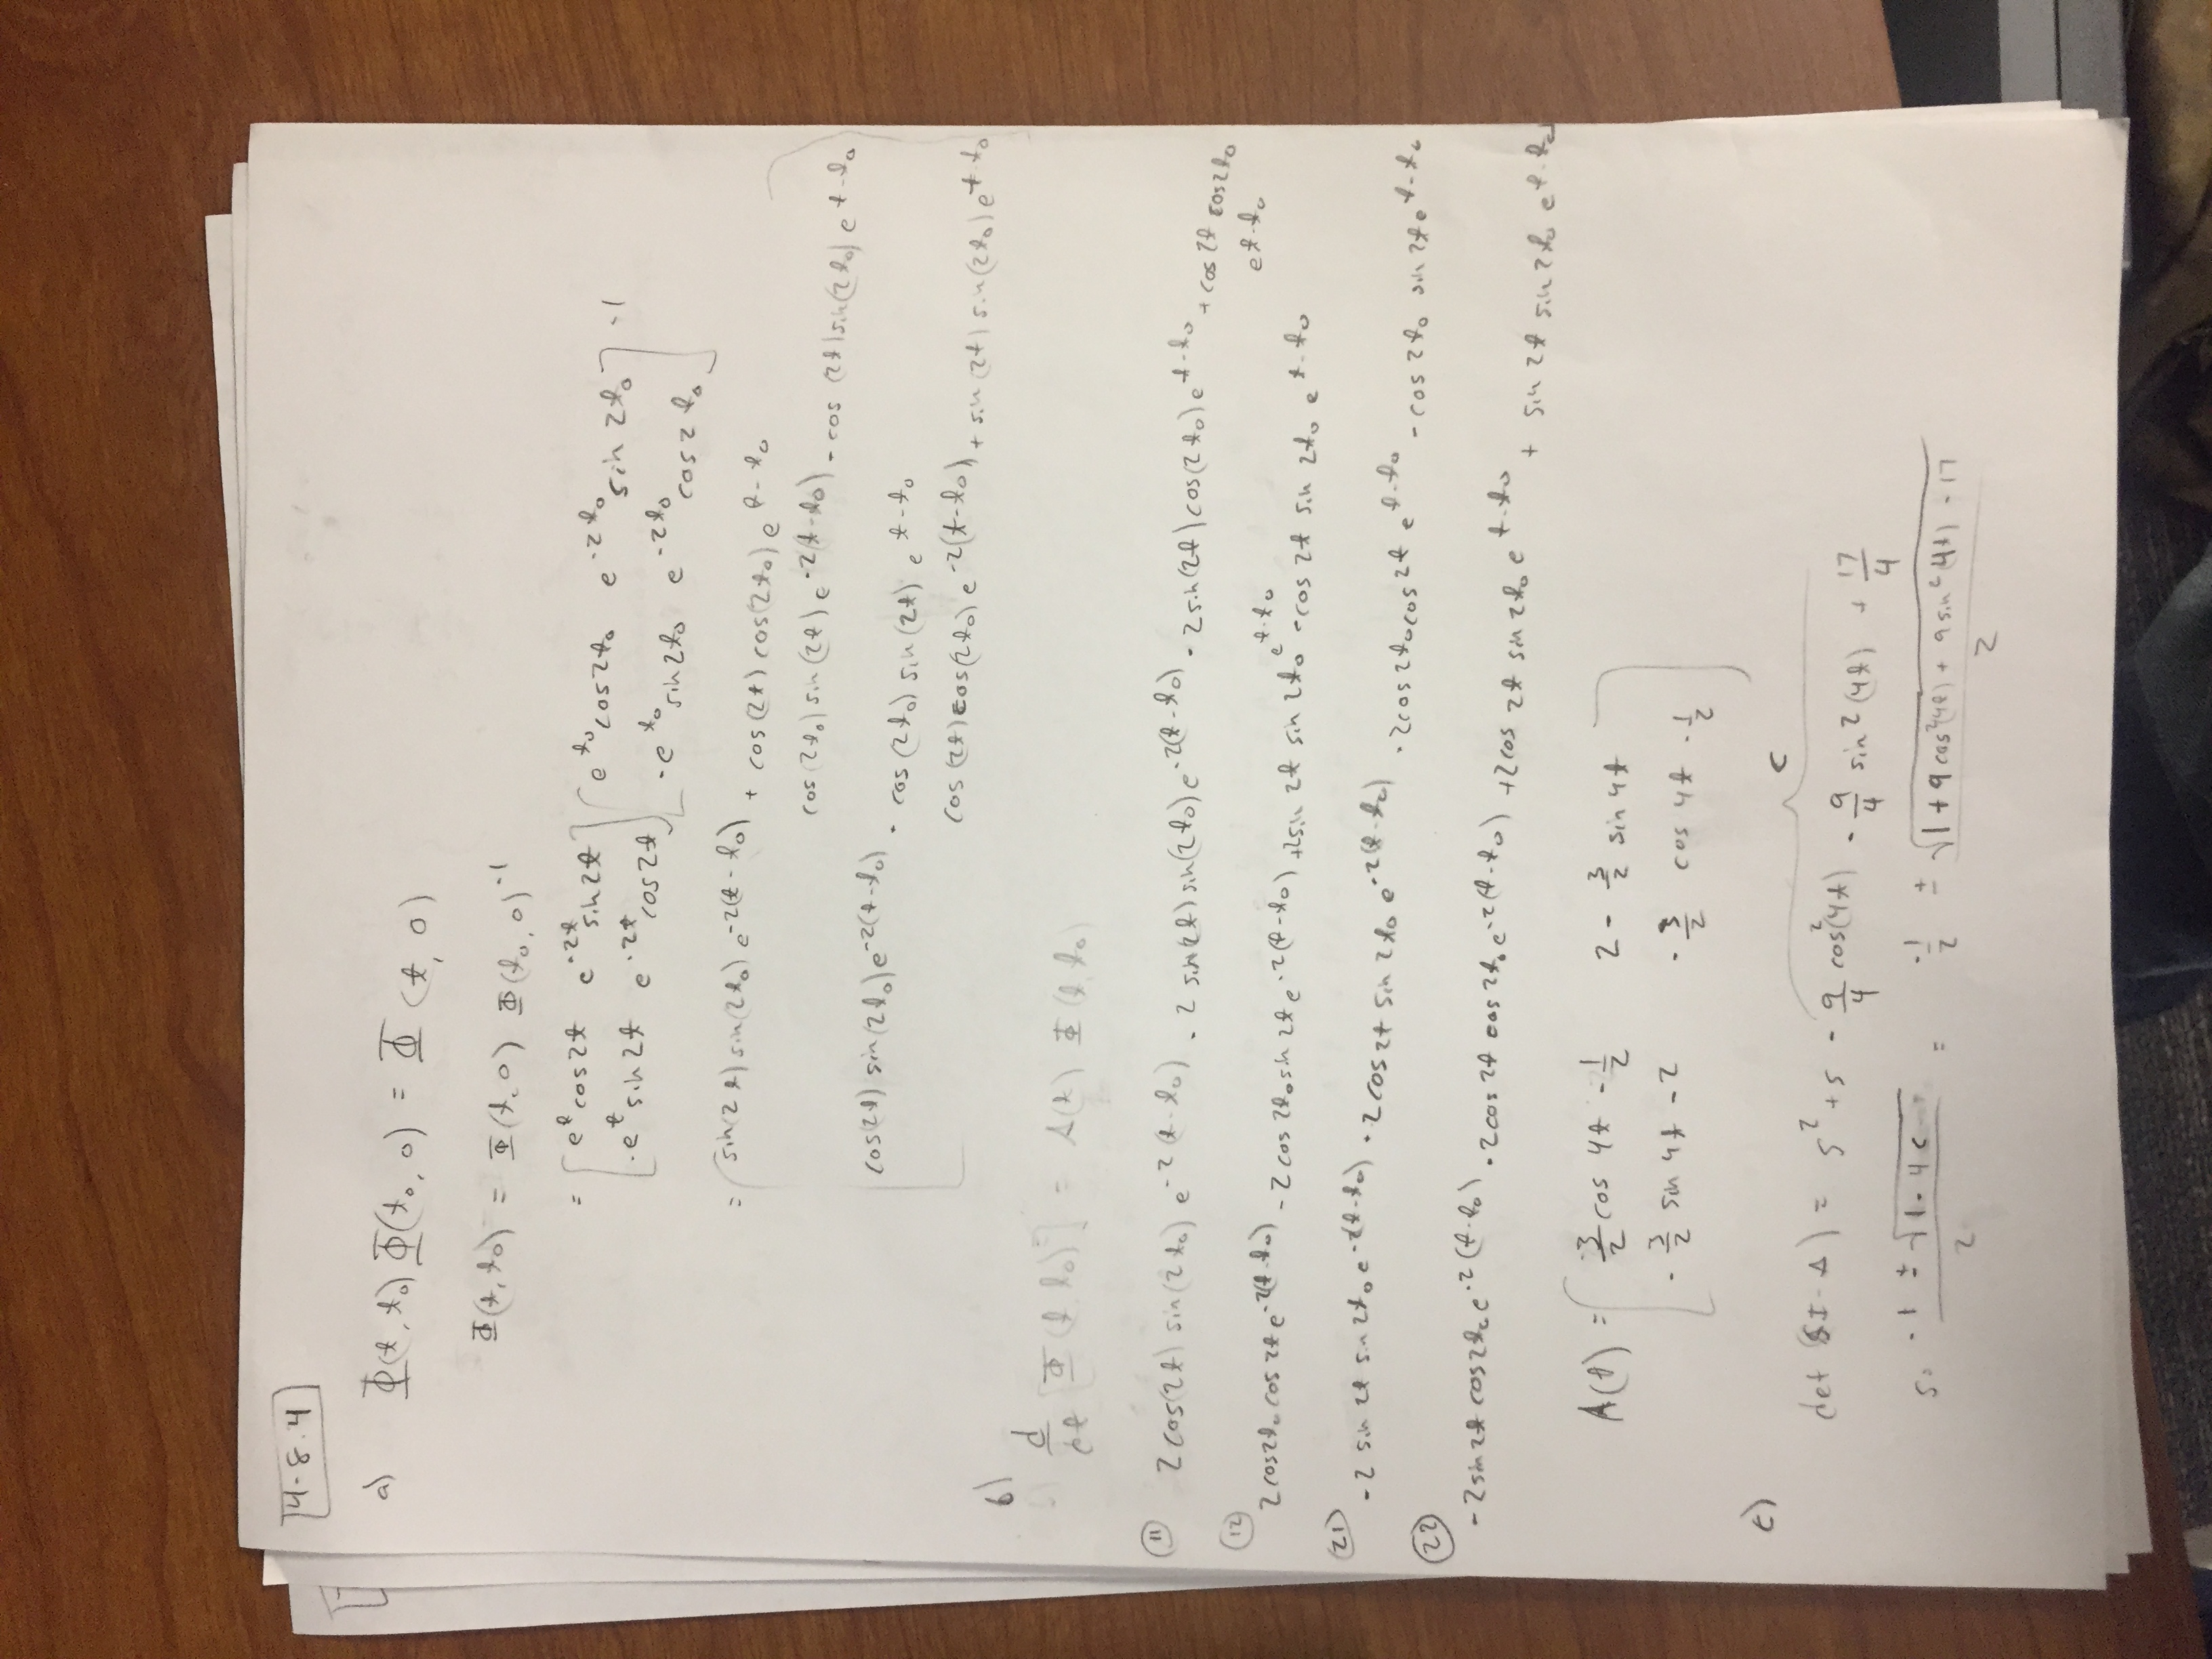 4-8.4
a) Φ(t, t₀) Φ(t₀, 0) = Φ(t, 0)
Φ(t, t₀) = Φ(t, 0) Φ(t₀, 0)⁻¹
= [ e^t cos2t e^-2t sin2t ] [ e^t₀ cos2t₀ e^-2t₀ sin2t₀ ] -1
[ -e^t sin2t e^-2t cos2t ] [ -e^t₀ sin2t₀ e^-2t₀ cos2t₀ ]
= [ sin(2t) sin(2t₀) e^-2(t-t₀) + cos(2t) cos(2t₀) e^t-t₀
cos(2t₀) sin(2t) e^-2(t-t₀) - cos(2t) sin(2t₀) e^t-t₀
cos(2t) sin(2t₀) e^-2(t-t₀) - cos(2t₀) sin(2t) e^t-t₀
cos(2t) cos(2t₀) e^-2(t-t₀) + sin(2t) sin(2t₀) e^t-t₀ ]
b)
d/dt [Φ(t, t₀)] = A(t) Φ(t, t₀)
11 2cos(2t) sin(2t₀) e^-2(t-t₀) - 2 sin(2t) sin(2t₀) e^-2(t-t₀) - 2sin(2t) cos(2t₀) e^t-t₀ + cos2t cos2t₀
e^t-t₀
12 2cos2t₀ cos2t e^-2(t-t₀) - 2cos2t₀ sin2t e^-2(t-t₀) + 2sin2t sin2t₀ e^t-t₀ - cos2t sin2t₀ e^t-t₀
21 -2 sin2t sin2t₀ e^-2(t-t₀) - 2cos2t sin2t₀ e^-2(t-t₀) - 2cos2t₀ cos2t e^t-t₀ - cos2t₀ sin2t e^t-t₀
22 -2sin2t cos2t₀ e^-2(t-t₀) - 2cos2t cos2t₀ e^-2(t-t₀) + 2cos2t sin2t₀ e^t-t₀ + sin2t sin2t₀ e^t-t₀
A(t) = [ 3/2 cos4t - 1/2 2 - 3/2 sin4t ]
[ -3/2 sin4t - 2 -3/2 cos4t - 1/2 ]
c)
c
det(sI-A) = s² + s - 9/4 cos²(4t) - 9/4 sin²(4t) + 17/4
s = (-1 ± √(1-4c))/2 = -1/2 ± √(1 + 9cos²(4t) + 9sin²(4t) - 17)/2